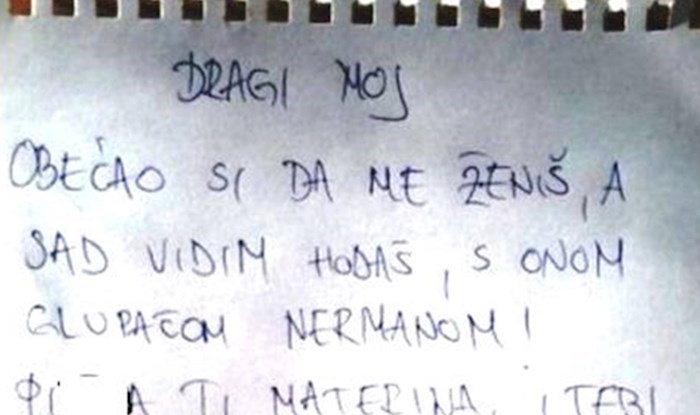 DRAGI MOJ
OBEĆAO SI DA ME ŽENIŠ, A
SAD VIDIM HODAŠ, S ONOM
GLUPAČOM NERMANOM!
A TI MATERINA, I TEBI